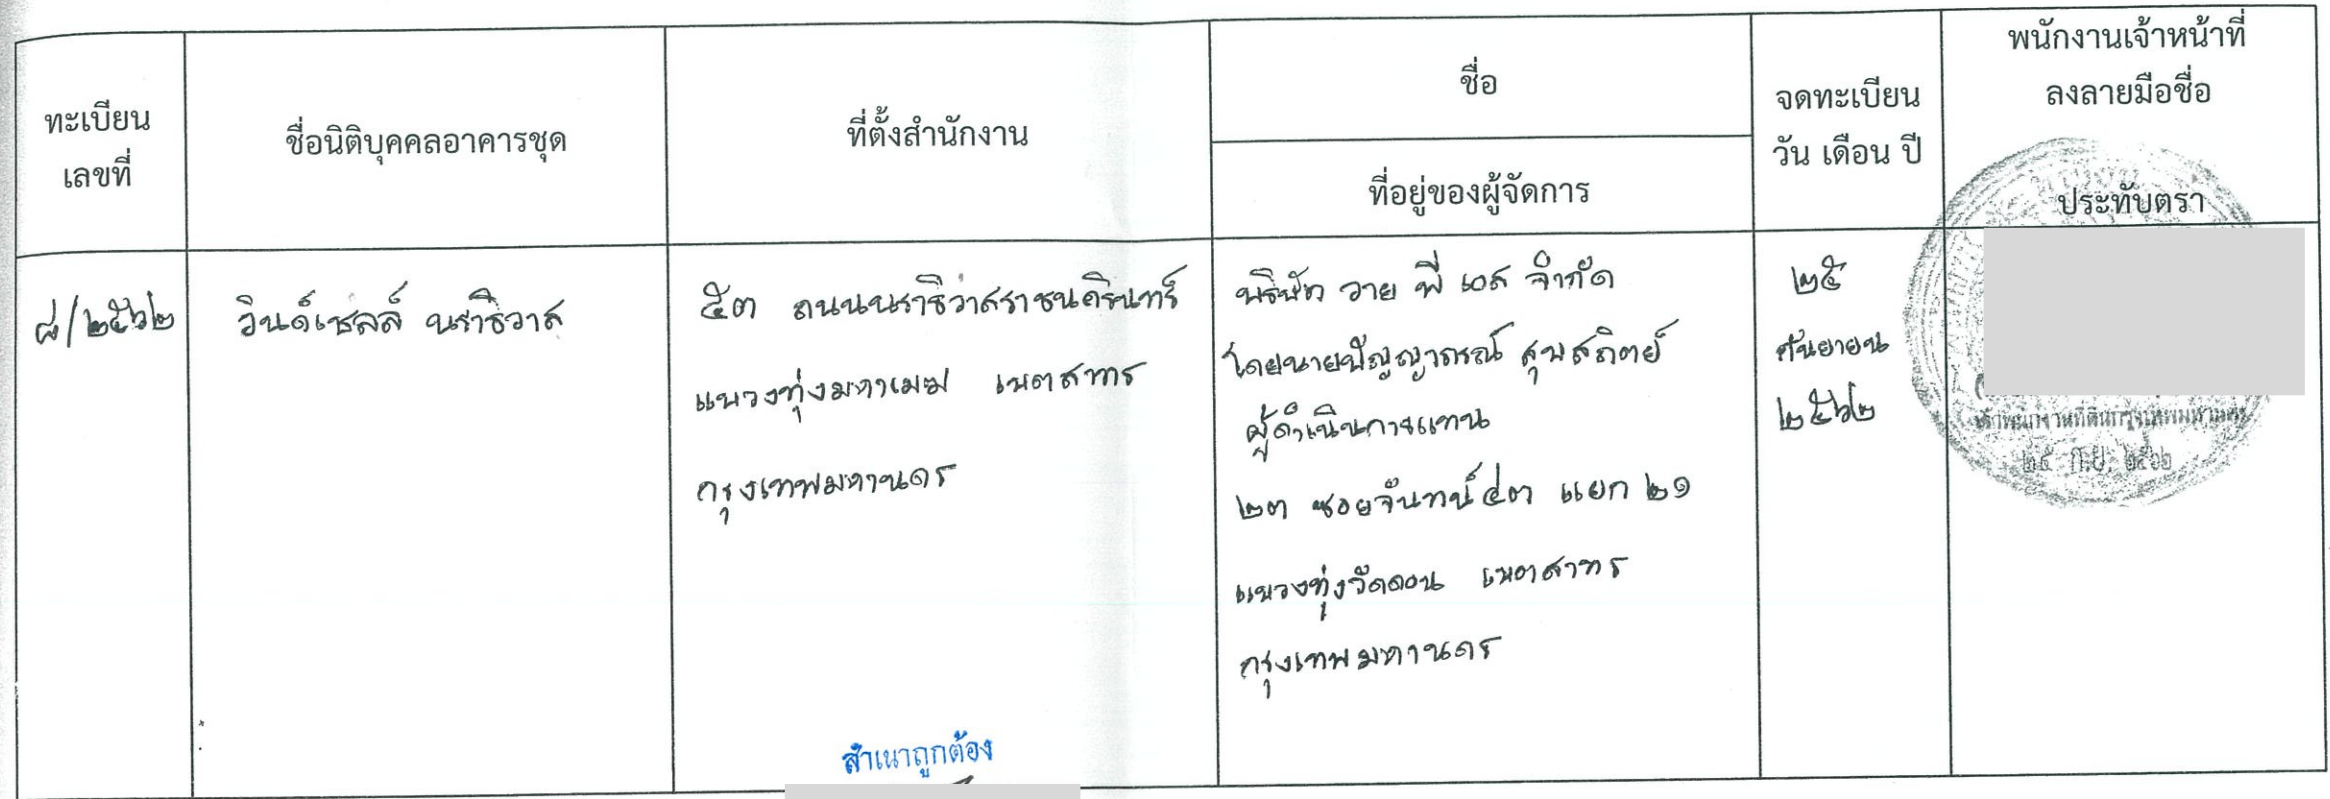 ทะเบียน
เลขที่
ชื่อนิติบุคคลอาคารชุด
ที่ตั้งสำนักงาน
ชื่อ
ที่อยู่ของผู้จัดการ
จดทะเบียน
วัน เดือน ปี
พนักงานเจ้าหน้าที่
ลงลายมือชื่อ
ประทับตรา
๘/๒๕๖๒
วินด์เชลล์ นราธิวาส
๕๓ ถนนนราธิวาสราชนครินทร์
แขวงทุ่งมหาเมฆ เขตสาทร
กรุงเทพมหานคร
บริษัท วาย พี เอส จำกัด
โดยนายปัญญาภรณ์ สุขสถิตย์
ผู้ดำเนินการแทน
๒๓ ซอยจันทน์ ๔๓ แยก ๒๑
แขวงทุ่งวัดดอน เขตสาทร
กรุงเทพมหานคร
๒๕
กันยายน
๒๕๖๒
เจ้าพนักงานที่ดินกรุงเทพมหานคร
๒๕ ก.ย. ๒๕๖๒
สำเนาถูกต้อง